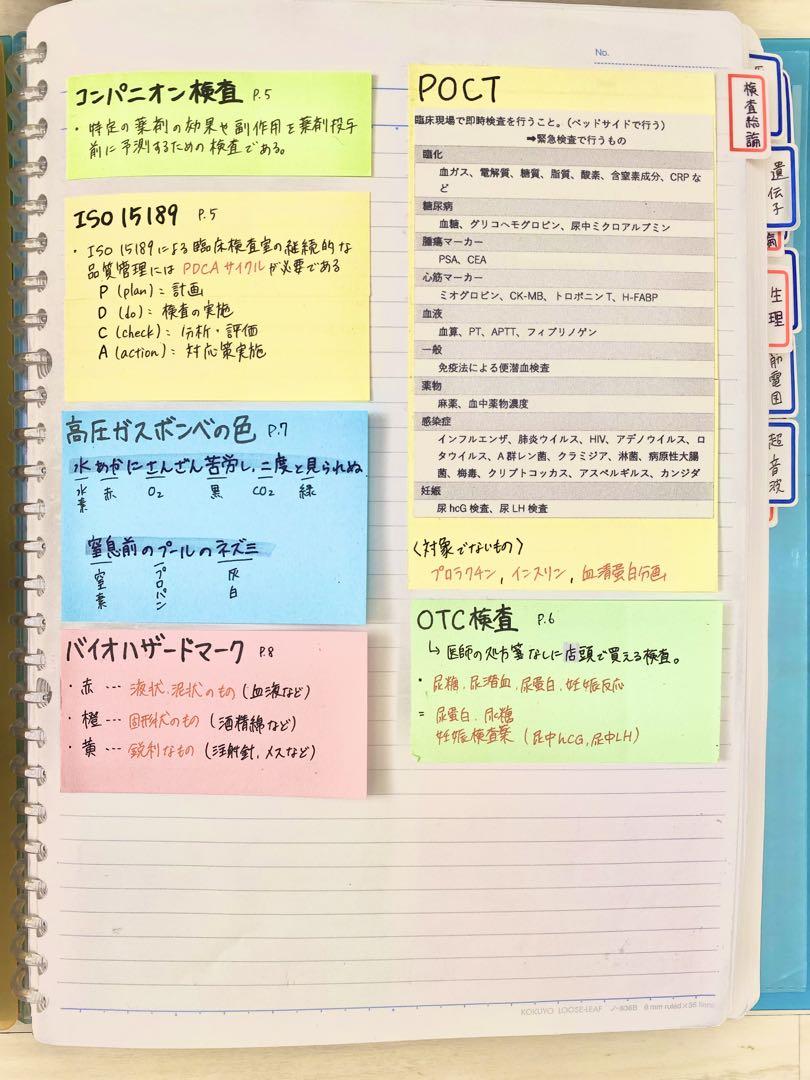 コンパニオン検査 P.5
・特定の薬剤の効果や副作用を薬剤投与
前に予測するための検査である。
ISO 15189 P.5
・ISO 15189による臨床検査室の継続的な
品質管理にはPDCAサイクルが必要である
P (plan): 計画
D (do): 検査の実施
C (check): 分析・評価
A (action): 対応策実施
高圧ガスボンベの色 P.7
水あかにさんざん苦労し、二度と見られぬ
水素 赤 O2 黒 CO2 緑
窒息前のプールのネズミ
窒素 プロパン 灰白
バイオハザードマーク P.8
・赤…液状、泥状のもの (血液など)
・橙…固形状のもの (酒精綿など)
・黄…鋭利なもの (注射針、メスなど)
No.
POCT
臨床現場で即時検査を行うこと。(ベッドサイドで行う)
➡緊急検査で行うもの
臨化
血ガス、電解質、糖質、脂質、酸素、含窒素成分、CRPな
ど
糖尿病
血糖、グリコヘモグロビン、尿中ミクロアルブミン
腫瘍マーカー
PSA、CEA
心筋マーカー
ミオグロビン、CK-MB、トロポニンT、H-FABP
血液
血算、PT、APTT、フィブリノゲン
一般
免疫法による便潜血検査
薬物
麻薬、血中薬物濃度
感染症
インフルエンザ、肺炎ウイルス、HIV、アデノウイルス、ロ
タウイルス、A群レン菌、クラミジア、淋菌、病原性大腸
菌、梅毒、クリプトコッカス、アスペルギルス、カンジダ
妊娠
尿hCG検査、尿LH検査
〈対象でないもの〉
プロラクチン、インスリン、血清蛋白分画
OTC検査 P.6
↳医師の処方箋なしに店頭で買える検査。
・尿糖、尿潜血、尿蛋白、妊娠反応
= 尿蛋白、尿糖
妊娠検査薬 (尿中hCG、尿中LH)
検査総論
遺伝子
生理
筋電図
超音波
KOKUYO LOOSE-LEAF ノ-836B 6 mm ruled×36 lines